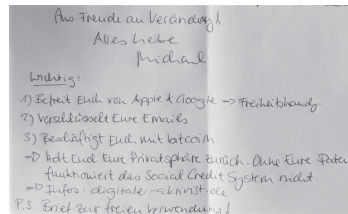 Aus Freude an Veränderung!
Alles Liebe
Michael
Wichtig:
1) Befreit Euch von Apple & Google -> Freiheitshandy
2) Verschlüsselt Eure Emails
3) Beschäftigt Euch mit bitcoin
-> Holt Euch Eure Privatsphäre zurück. Ohne Eure Daten
funktioniert das Social Credit System nicht.
-> Infos: digitale-
P.S. Brief zur freien Verwendung!